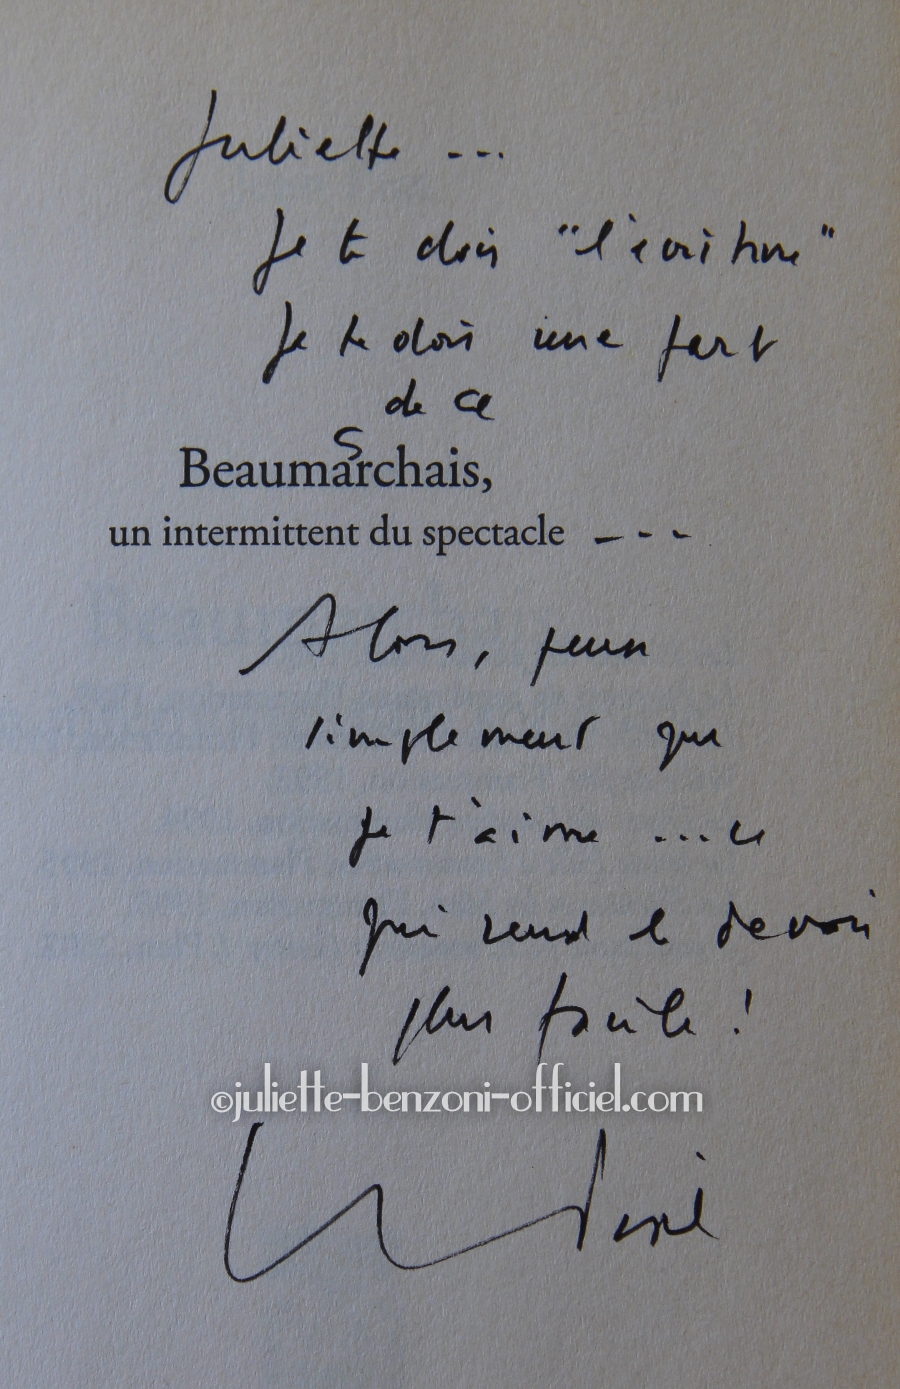 Juliette ...
Je te dois "l'écriture"
Je te dois une part
de ce
Beaumarchais,
un intermittent du spectacle ---
Alors, 
simplement que
je t'aime ... ce
qui rend le devoir
plus facile !
©juliette-benzoni-officiel.com